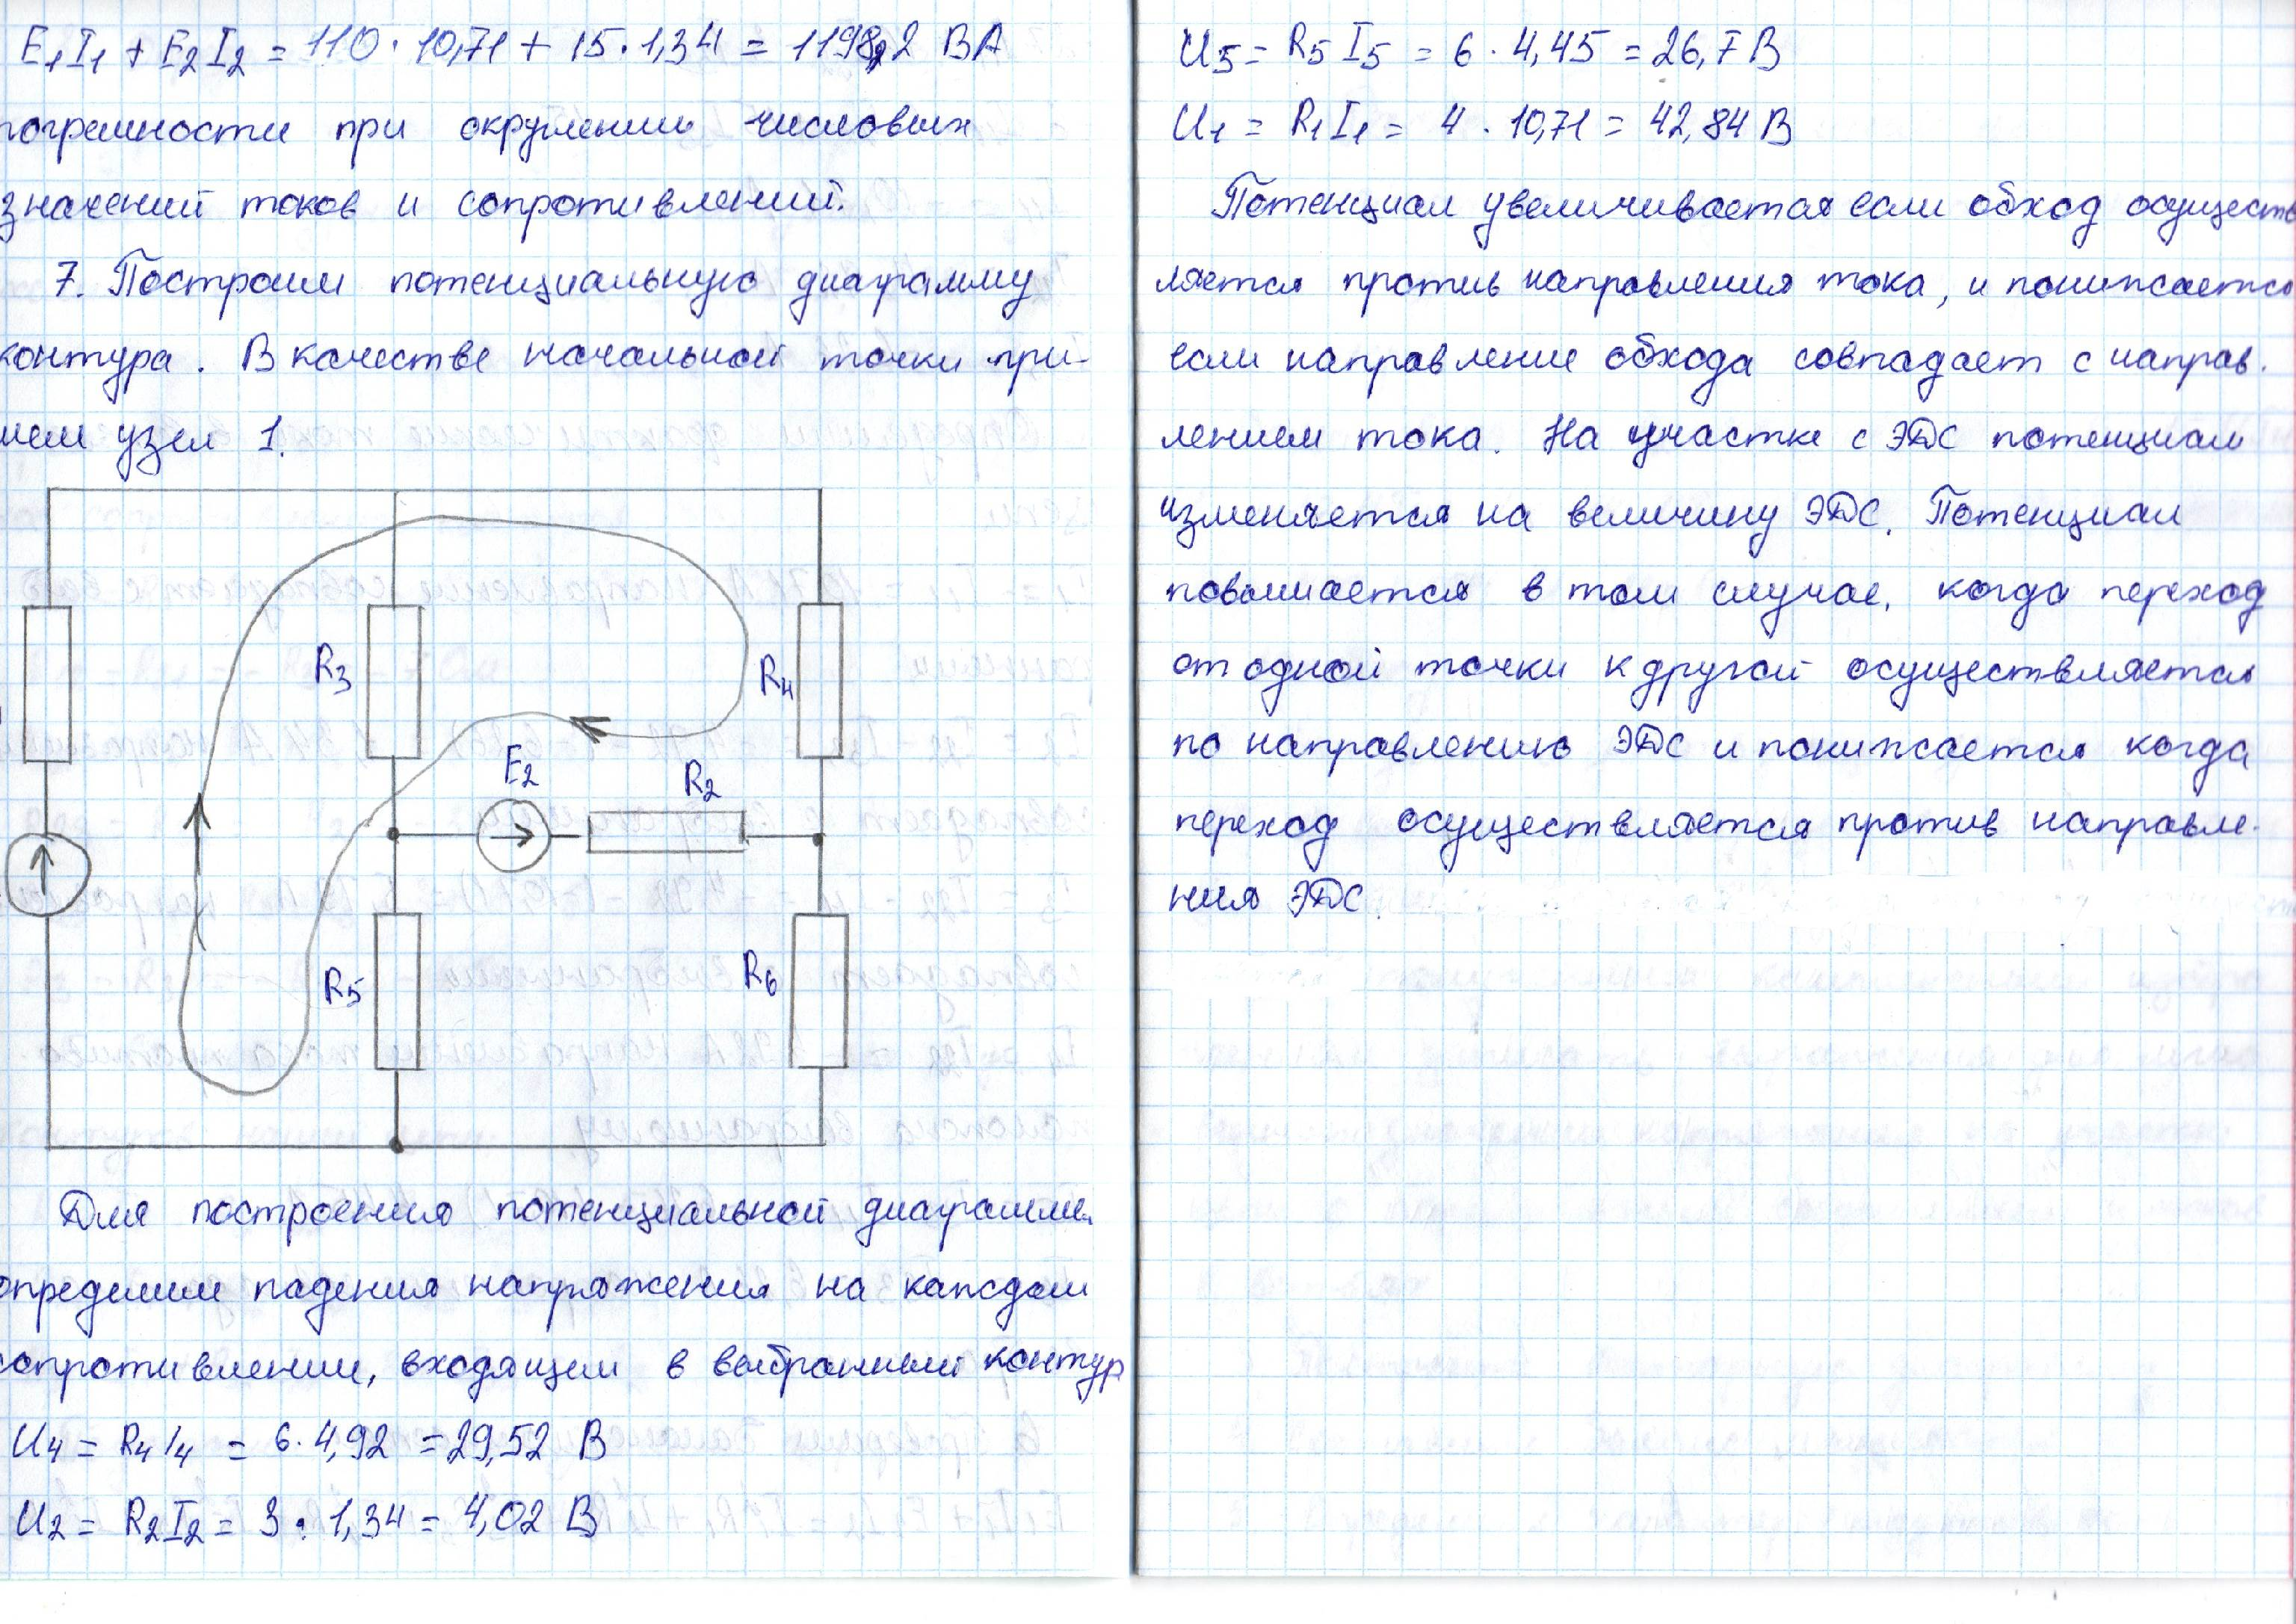 E₁I₁ + E₂I₂ = 110 · 10,71 + 15 · 1,34 = 1198,2 ВА
погрешности при округлении числовых
значений токов и сопротивлений.
7. Построим потенциальную диаграмму
контура. В качестве начальной точки при-
мем узел 1.
R₃
R₄
E₂
R₂
R₅
R₆
Для построения потенциальной диаграммы
определим падения напряжения на каждом
сопротивлении, входящем в выбранный контур
U₄ = R₄I₄ = 6 · 4,92 = 29,52 В
U₂ = R₂I₂ = 3 · 1,34 = 4,02 В
U₅ = R₅I₅ = 6 · 4,45 = 26,7 В
U₁ = R₁I₁ = 4 · 10,71 = 42,84 В
Потенциал увеличивается если обход осуществ
ляется против направления тока, и понижается
если направление обхода совпадает с направ.
лением тока. На участке с ЭДС потенциал
изменяется на величину ЭДС. Потенциал
повышается в том случае, когда переход
от одной точки к другой осуществляется
по направлению ЭДС и понижается когда
переход осуществляется против направле-
ния ЭДС.